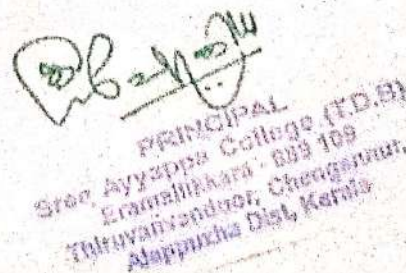 PRINCIPAL
Sree Ayyappa College (T.D.B)
Eramallikkara - 689 109
Thiruvanvandoor, Chengannur,
Alappuzha Dist, Kerala